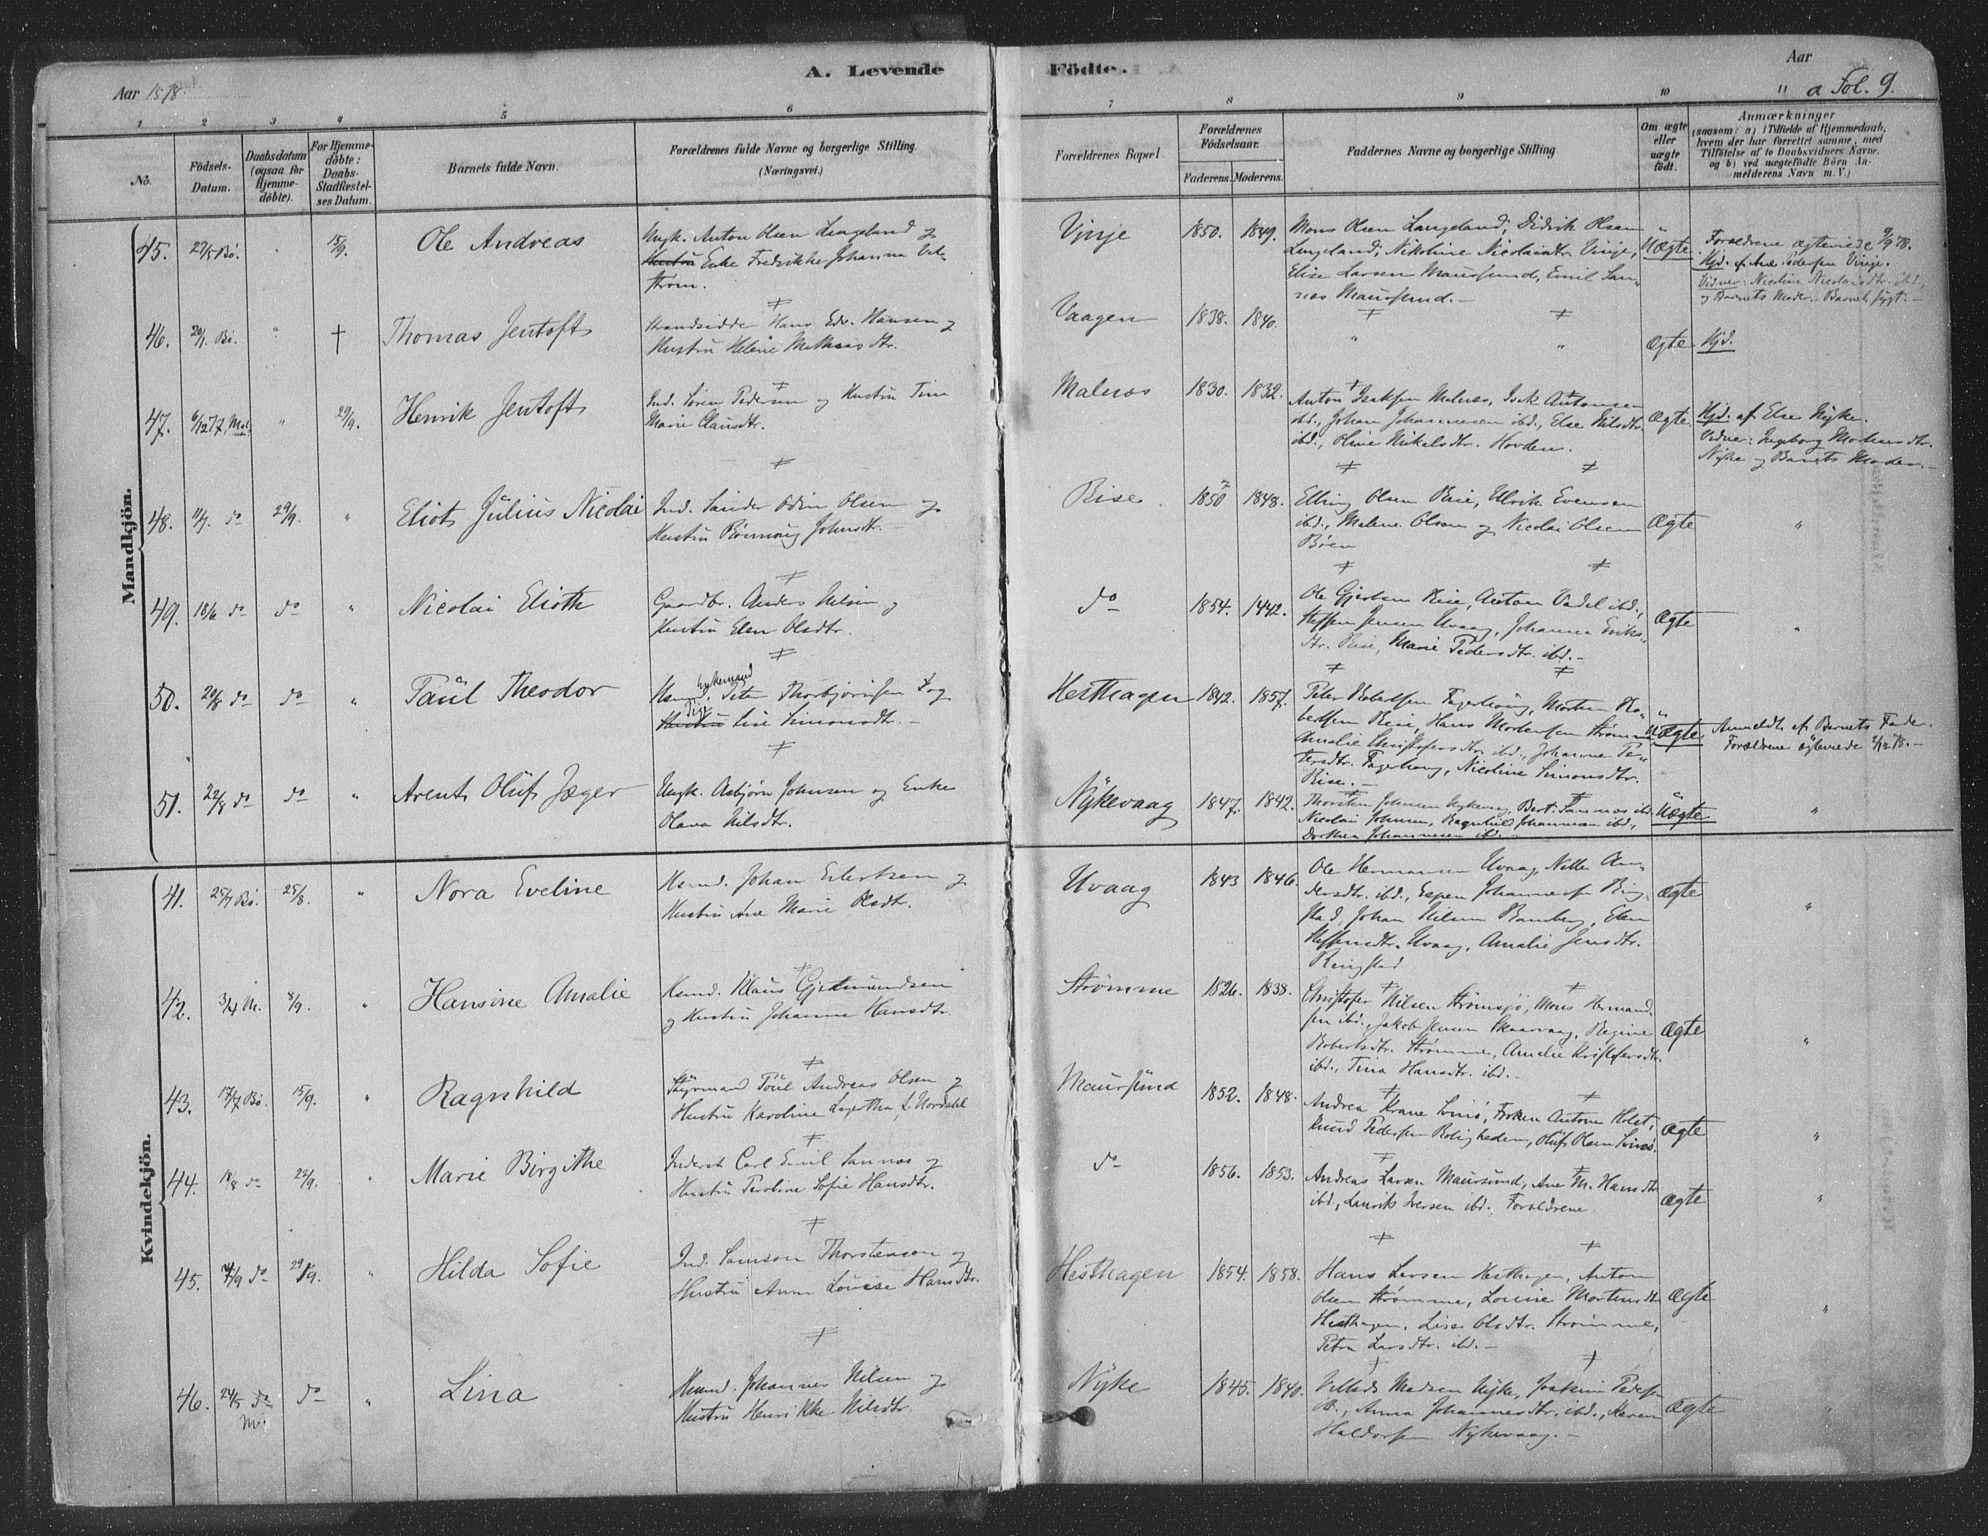 Aar 1878.
A. Levende
Födte.
Aar
a Fol. 9.
1 2 3 4 5 6 7 8 9 10 11
No.
Födsels-Datum.
Daabsdatum (ogsaa for Hjemme-döbte).
For Hjemme-döbte: Daabs-Stadfæstel-ses Datum.
Barnets fulde Navn.
Forældrenes fulde Navne og borgerlige Stilling. (Næringsvei.)
Forældrenes Bopæl.
Forældrenes Födselsaar.
Faderens. Moderens.
Faddernes Navne og borgerlige Stilling
Om ægte eller uægte födt.
Anmærkninger
(saasom: a) i Tilfælde af Hjemmedaab, hvem der har forrettet samme, med Tilföielse af to Daabsvidners Navne, og b) ved uægtefödte Börn An-melderens Navn m. V.)
Mandkjön.
45. 27/5 Bö. " 15/9. Ole Andreas
Ungk. Anton Olsen Langeland og
Hustru Enke Fredrikke Johanna
strøm.
Vinje 1850. 1849.
Mons Olsen Langeland, Didrik Olsen
Langeland, Nikoline Nicolaidtr. Vinje,
Elise Larsen Maursund, Emil San-
nes Maursund.
Uægte
Forældrene ægteviede 9/9 78.
Hjd. af Ane Pedersen Vinje.
Vidner: Nicoline Nicolaisdtr. ibd,
og Barnets Moder. Barnet
46. 20/1. Bö. " † Thomas Jentoft
Strandsidder Hans Edv. Hansen og
Hustru Helene Mathiasdtr.
Vaagen 1838. 1840. " " Ægte Hjd.
47. 6/12 77. " 29/9. Henrik Jentoft
Ind. Sören Pedersen og Hustru Tina
Marie Clausdtr.
Malnæs 1830. 1832.
Anton Isaksen Malnæs, Isak Antonsen
ibd., Johan Johannesen ibd., Else Nilsdtr.
ibd., Oline Nikelsdtr. Hovden.
Ægte
Hjd. af Else Nyke.
Vidner: Ingeborg Mortensdtr.
Nyke og Barnets Moder.
48. 11/7. do 29/9. " Eliot Julius Nicolai
Ind. Sander Odin Olsen og
Hustru Rønnaug Johnsdtr.
Rise 1850 1848.
Elling Olsen Rise, Ulrik Evensen
ibd., Malene Olsen og Nicolai Olsen
Böen
Ægte "
49. 18/6 do do " Nicolai Elioth
Gaardbr. Anders Nilsen og
Hustru Elen Olsdtr.
do 1854. 1442.
Ole Gjertsen Rise, Anton Vadel ibd.,
Steffen Jensen Uvaag, Johanna Eriks-
dtr. Rise, Marie Pedersdtr. ibd.
Ægte "
50. 20/8 do do " Paul Theodor
Ungkarmand Peter Thorbjörnsen og
Hustru Pige Lise Simonsdtr.
Hesthagen 1842. 1857.
Peter Robertsen Fagerhaug, Morten Ro-
bertsen Rise, Hans Mortensen Strömme
Amalie Christofersdtr. ibd., Johanne Pe-
tersdtr. Fagerhaug, Nicoline Simonsdtr.
Rise.
Uægte
Anmeldt af Barnets Fader.
Forældrene ægteviede 2/12 78.
51. 22/8 do do " Arent Oluf Jæger
Ungk. Asbjörn Johnsen og Enke
Olava Nilsdtr.
Nykevaag 1847. 1842.
Thorsten Johnsen Nykevaag, Bert. Sannæs ibd.
Nicolai Johnsen, Ragnhild Johannesen ibd.,
Dorthea Johannesen ibd.
Uægte "
Kvindekjön.
41. 25/7 Bö. 25/8. " Nora Eveline
Hmd. Johan Eilertsen og
Hustru Ane Marie Olsdtr.
Uvaag 1843 1846.
Ole Hermansen Uvaag, Nille An-
dersdtr. ibd., Espen Johannesen Ring-
stad, Johan Nilsen Ramberg, Elen
Steffensdtr. Uvaag, Amalie Jensdtr.
Ringstad
Ægte "
42. 3/4 M. 8/9. " Hansine Amalie
Hmd. Klaus Gjermundsen
og Hustru Johanna Hansdtr.
Strömme 1826. 1838.
Christofer Nilsen Strømsjö, Mons Hermand-
sen ibd., Jakob Jensen Skaarvaag, Regine
Robertsdtr. Strömme, Amalie Kristofersdtr.
ibd., Tina Hansdtr. ibd.
Ægte "
43. 17/7 Bö. 15/9. " Ragnhild
Styrmand Poul Andreas Olsen og
Hustru Karoline Lagertha f. Nordahl
Maursund 1852. 1848.
Andrea Krane Svinö, Fröken Antone Holst,
Knud Pedersen Roligheden, Oluf Olsen Svinö.
Ægte "
44. 18/8 do 23/9. " Marie Birgithe
Inderst Carl Emil Sannæs og
Hustru Peroline Sofie Hansdtr.
do 1856. 1853.
Andreas Larsen Maursund, Ane M. Hansdtr.
ibd., Laurits Iversen ibd., Forældrene.
Ægte "
45. 4/9 do 29/9. " Hilda Sofie
Ind. Samson Thorstensen og
Hustru Anne Lovise Hansdtr.
Hesthagen 1854. 1858.
Hans Larsen Hesthagen, Anton
Olsen Strömme, Lovise Mortensdtr
Hesthagen, Lise Olsdtr. Strömme,
Petra Larsdtr. ibd.
Ægte "
46. 24/5 do do " Lina
Hmd. Johannes Nilsen og
Hustru Henrikke Nilsdtr.
Nyke 1845. 1840.
Villads Madsen Nyke, Joakim Peders
ib., Anna Johannesdtr. ibd., Maren
Haldorsen Nykevaag.
Ægte "